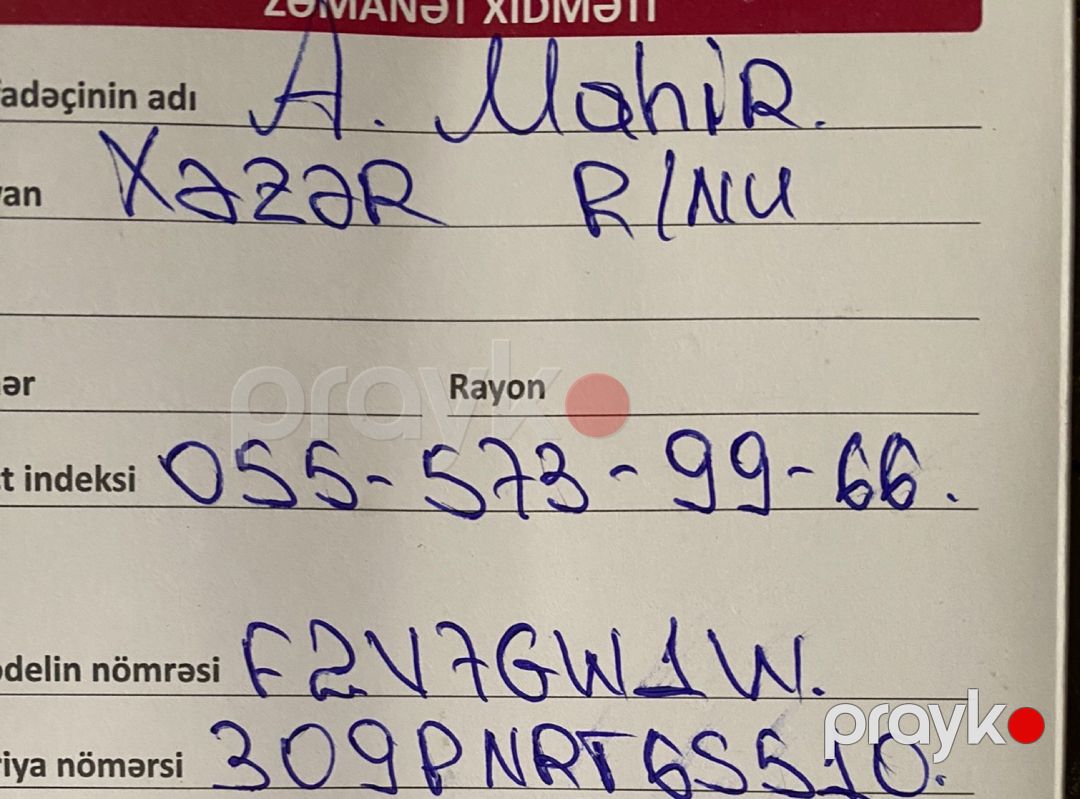 ZƏMANƏT XİDMƏTİ
adəçinin adı A. Mahir.
an XƏZƏR R/NU
ər Rayon
t indeksi 055-573-99-66.
delin nömrəsi F2V7GW1W.
riya nömərsi 309PNRT6S510.
prayk
prayk